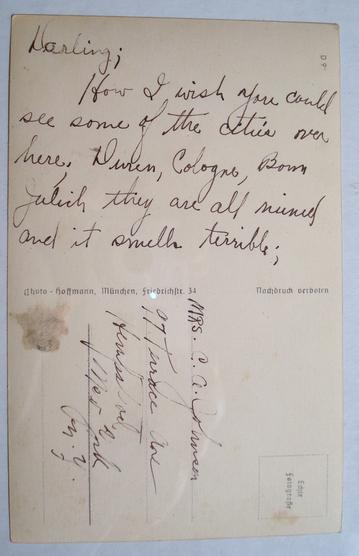 Darling;
How I wish you could
see some of the cities over
here, Duren, Cologne, Bonn
Julich they are all ruined
and it smells terrible;
Photo - Hoffmann, München, Friedrichstr. 34
Nachdruck verboten
Mrs. C. A. Johnson
Terrace Ave
N. Y.
Echte
Fotografie